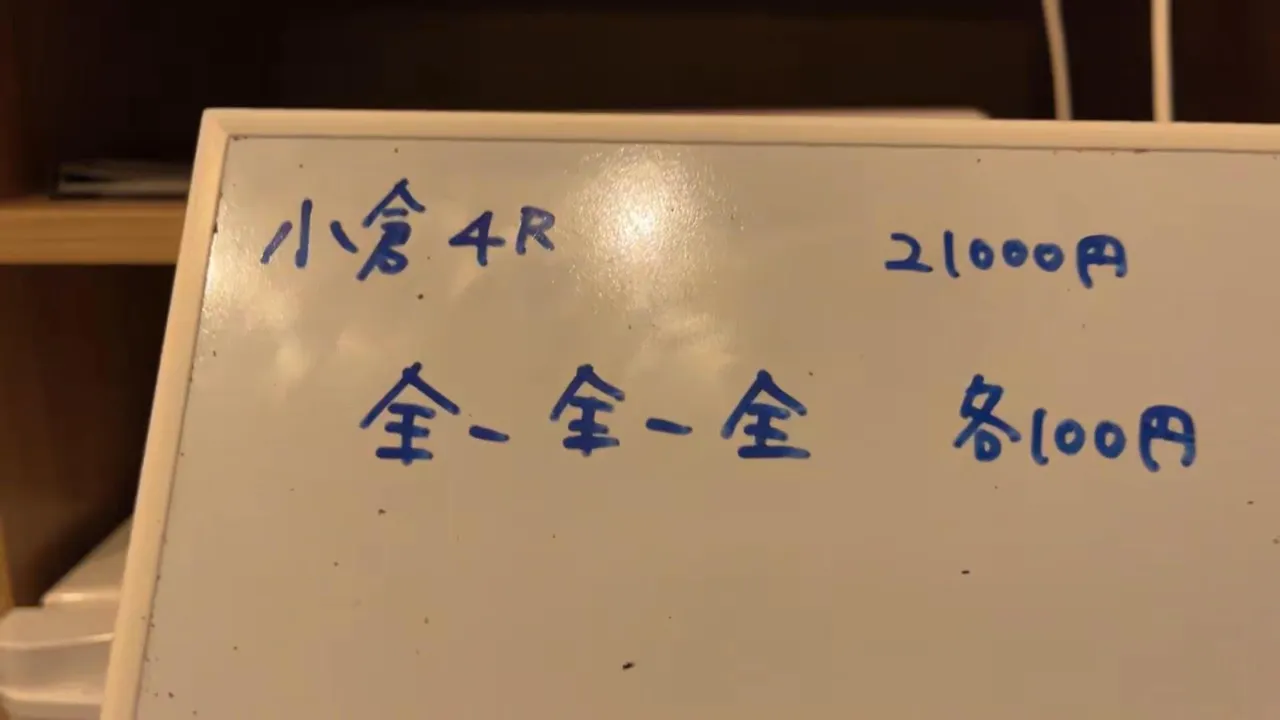 小倉4R 21000円
全-全-全 各100円